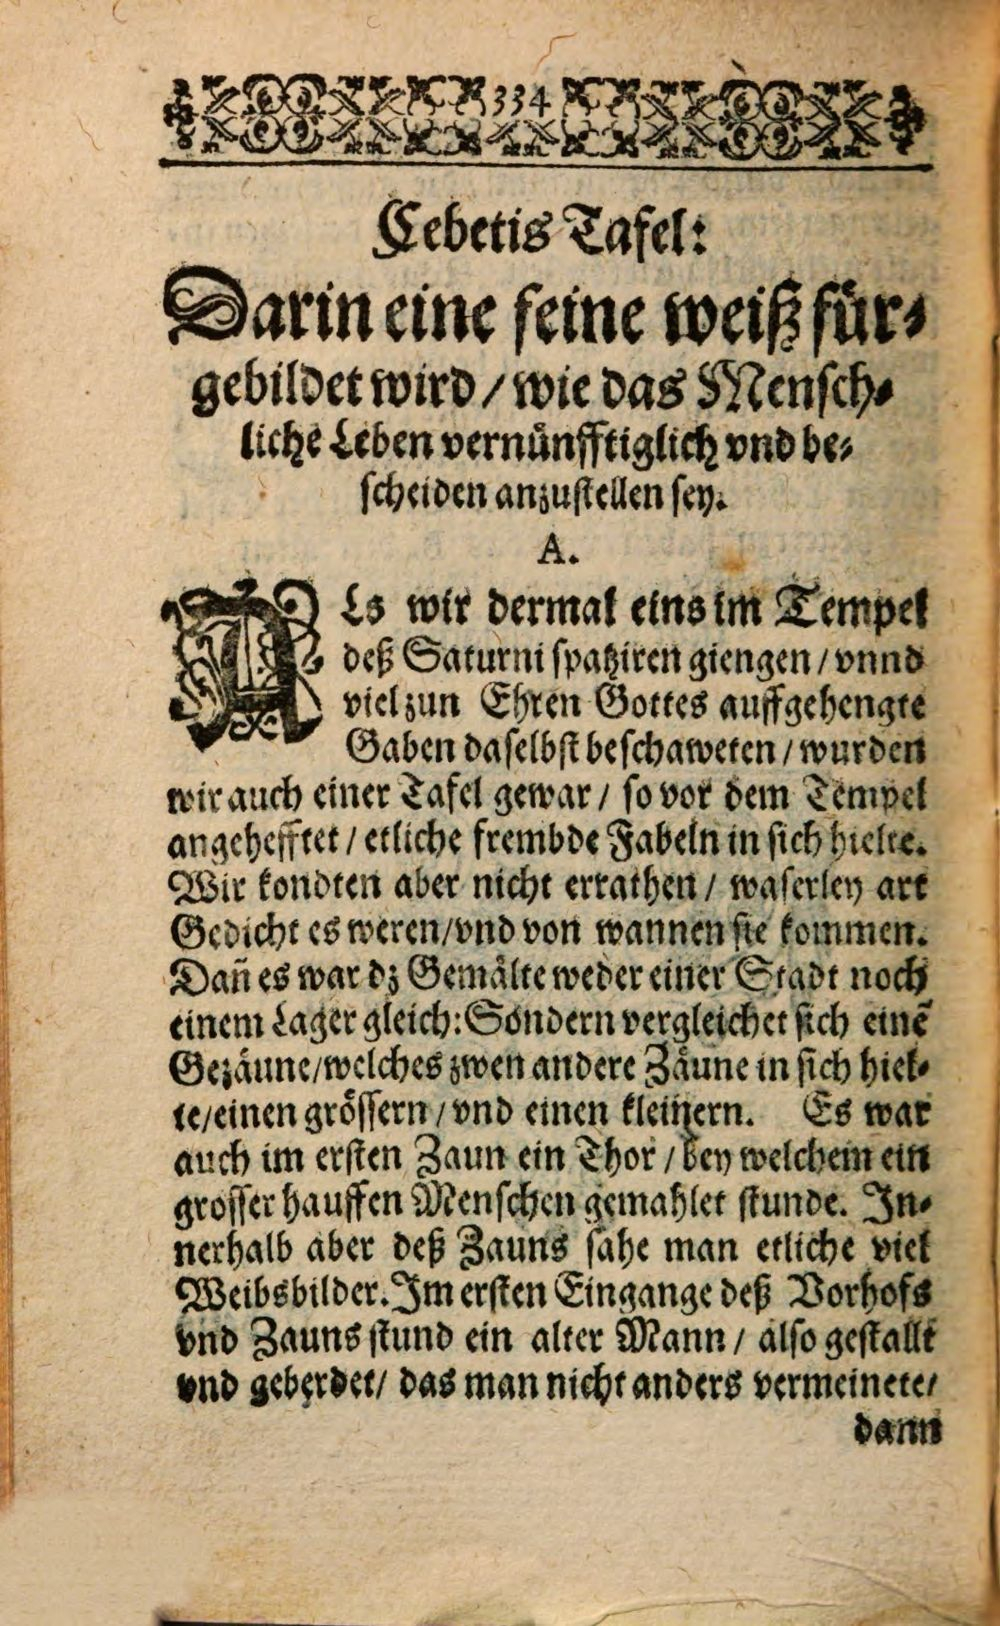 334
Cebetis Tafel:
Darin eine feine weiß für-
gebildet wird / wie das Mensch-
liche Leben vernünfftiglich vnd be-
scheiden anzustellen sey.
A.
ALs wir dermal eins im Tempel
deß Saturni spatziren giengen / vnnd
viel zun Ehren Gottes auffgehengte
Gaben daselbst beschaweten / wurden
wir auch einer Tafel gewar / so vor dem Tempel
angehefftet / etliche frembde Fabeln in sich hielte.
Wir kondten aber nicht errathen / waserley art
Gedicht es weren / vnd von wannen sie kommen.
Dan̄ es war dz Gemälte weder einer Stadt noch
einem Lager gleich: Sondern vergleichet sich einē
Gezäune / welches zwen andere Zäune in sich hiel-
te / einen grössern / vnd einen kleinern. Es war
auch im ersten Zaun ein Thor / bey welchem ein
grosser hauffen Menschen gemahlet stunde. In-
nerhalb aber deß Zauns sahe man etliche viel
Weibsbilder. Im ersten Eingange deß Vorhofs
vnd Zauns stund ein alter Mann / also gestallt
vnd geberdet / das man nicht anders vermeinete /
dann